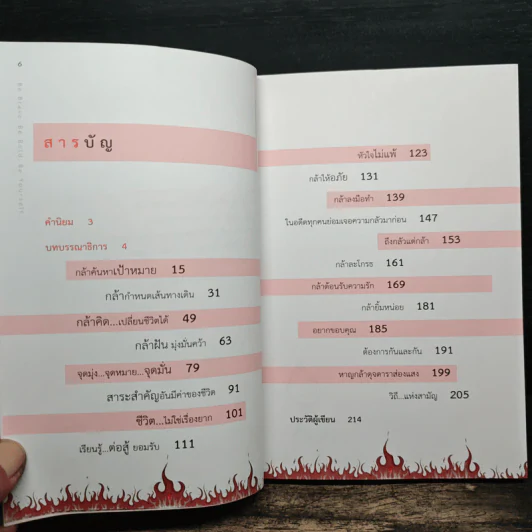 6
Be Brave Be Bold Be Yourself
สารบัญ
คำนิยม 3
บทบรรณาธิการ 4
กล้าค้นหาเป้าหมาย 15
กล้ากำหนดเส้นทางเดิน 31
กล้าคิด...เปลี่ยนชีวิตได้ 49
กล้าฝัน มุ่งมั่นคว้า 63
จุดมุ่ง...จุดหมาย...จุดมั่น 79
สาระสำคัญอันมีค่าของชีวิต 91
ชีวิต...ไม่ใช่เรื่องยาก 101
เรียนรู้...ต่อสู้ ยอมรับ 111
หัวใจไม่แพ้ 123
กล้าให้อภัย 131
กล้าลงมือทำ 139
ในอดีตทุกคนย่อมเจอความกลัวมาก่อน 147
ถึงกลัวแต่กล้า 153
กล้าละโกรธ 161
กล้าต้อนรับความรัก 169
กล้ายิ้มหน่อย 181
อยากขอบคุณ 185
ต้องการกันและกัน 191
หาญกล้าดุจดาราส่องแสง 199
วิถี...แห่งสามัญ 205
ประวัติผู้เขียน 214